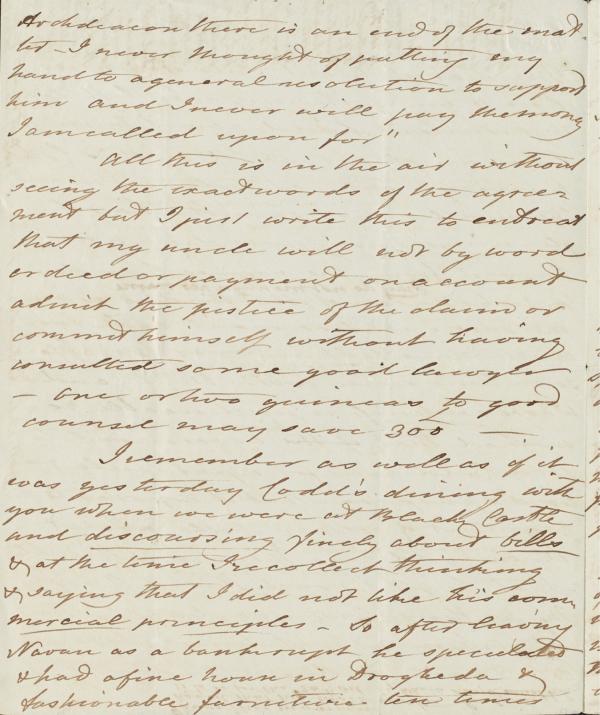 Archdeacon there is an end of the mat
ter - I never thought of putting my
hand to a general resolution to support
him and I never will pay the money
I am called upon for"
All this is in the air without
seeing the exact words of the agree-
ment but I just write this to entreat
that my uncle will not by word
or deed or payment on account
admit the justice of the claim or
commit himself without having
consulted some good lawyer
- one or two guineas to good
counsel may save 300 —
I remember as well as if it
was yesterday Codd's dining with
you when we were at Black Castle
and discoursing finely about bills
& at the time I recollect thinking
& saying that I did not like his com
mercial principles - So after leaving
Navan as a bankrupt he speculated
& had a fine house in Drogheda &
fashionable furniture ten times